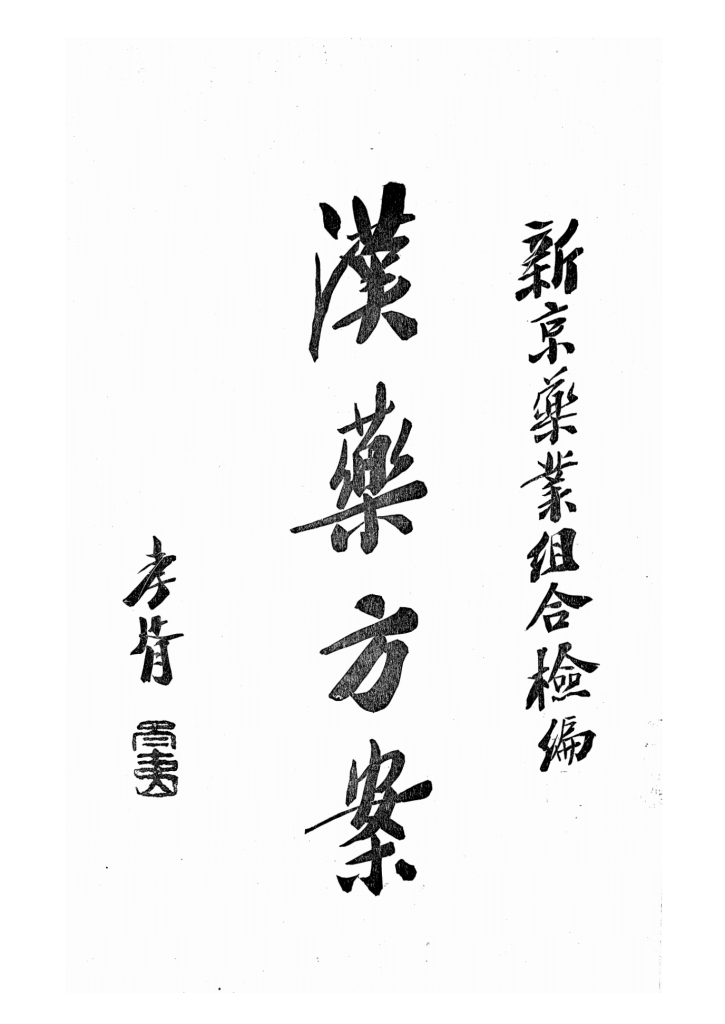 新京藥業组合檢編
漢藥方案
孝胥